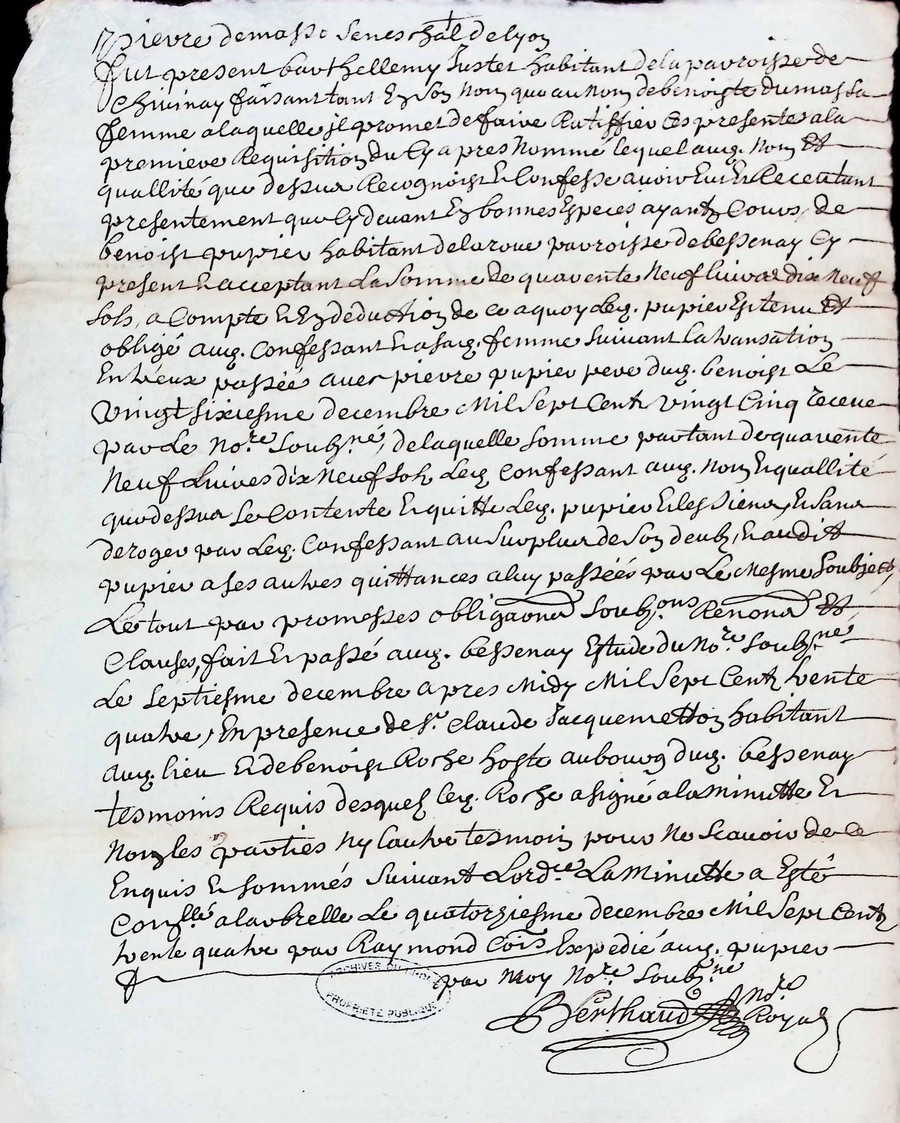 pierre demasso seneschal de lyon
fut present barthellemy Juster habitant de la parroisse de
Chivinay faisant tant En son nom que au nom de benoiste dumas sa
femme a laquelle jl promet de faire Ratiffier Ces presente a la
premiere Requisition du Cy apres Nommé lequel aud. Nom Et
quallité que dessus Recognoist Et Confesse avoir Eu Et Receu tant
presentement que Cy devant En bonnes Especes ayantz Cours, de
benoist pupier habitant de la roue parroisse de bessenay Cy
present Et acceptant La somme de quarente Neuf Livres dix Neuf
sols, a Compte Et En deduction de ce a quoy Led. pupier Est tenu Et
obligé aud. Confessant Et a sad. femme suivant la transation
Entr'eux passée avec pierre pupier pere dud. benoist Le
vingt sixiesme decembre Mil sept Centz vingt Cinq receue
par Le Nore. soubz.né, de laquelle somme partant de quarente
Neuf Livres dix Neuf sols Led. Confessant aud. Nom Et quallité
que dessus se Contente Et quitte Led. pupier Et les siens, Et sans
deroger par Led. Confessant au surplus de son deub, Et audit
pupier a ses autres quittances a luy passéés par Le Mesme
Le tout par promesses obligaons soubz.ons Renons Et
Clauses, fait Et passé aud. bessenay Estude du Nore. soubz.né
Le septiesme decembre apres Midy Mil sept Centz trente
quatre, En presence de sr. Claude Jacquemetton habitant
aud. lieu Et de benoist Roche hoste au bourg dud. bessenay
tesmoins Requis desquels led. Roche a signé a la Minutte Et
Non les parties Ny l'autre tesmoin pour Ne scavoir de ce
Enquis Et sommés suivant Lordce. La Minutte a Esté
Conllé. a larbrelle Le quatorziesme decembre Mil sept Centz
trente quatre par Raymond Cois Expedié aud. pupier
par moy Nore. soubz.né
Berthaud Nore. Royal
ARCHIVES DU RHÔNE
PROPRIÉTÉ PUBLIQUE